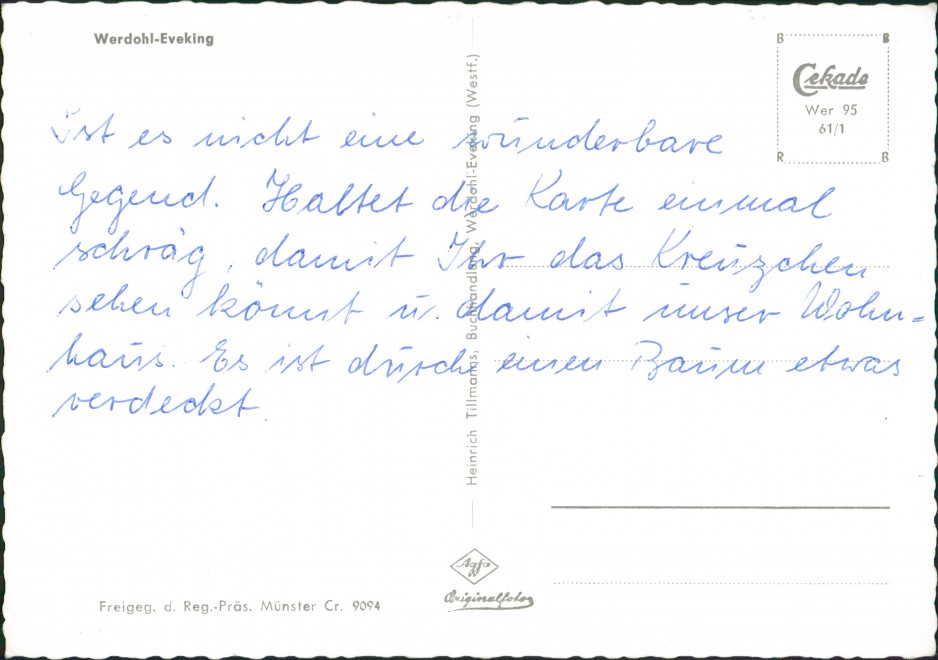 Werdohl-Eveking
B B
Cekade
Wer 95
61/1
R B
Ist es nicht eine wunderbare
Gegend. Haltet die Karte einmal
schräg, damit Ihr das Kreuzchen
sehen könnt u. damit unser Wohn=
haus. Es ist durch einen Baum etwas
verdeckt.
Heinrich Tillmanns, Buchhandlung, Werdohl-Eveking (Westf.)
Agfa
Originalfoto
Freigeg. d. Reg.-Präs. Münster Cr. 9094